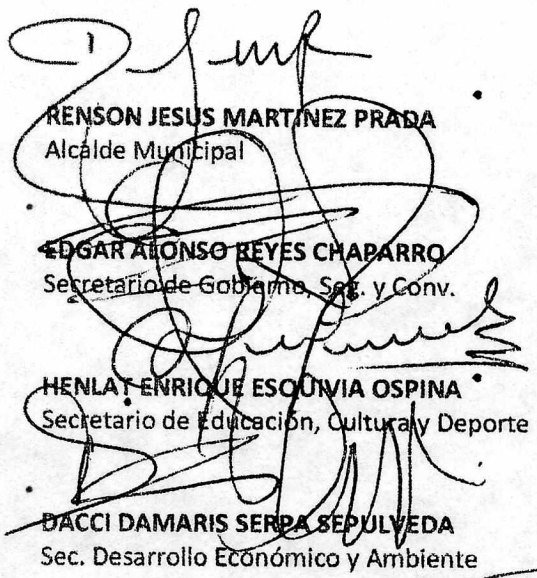 RENSON JESUS MARTINEZ PRADA
Alcalde Municipal
EDGAR ALONSO REYES CHAPARRO
Secretario de Gobierno, Seg. y Conv.
HENLAY ENRIQUE ESQUIVIA OSPINA
Secretario de Educación, Cultura y Deporte
DACCI DAMARIS SERPA SEPULVEDA
Sec. Desarrollo Económico y Ambiente